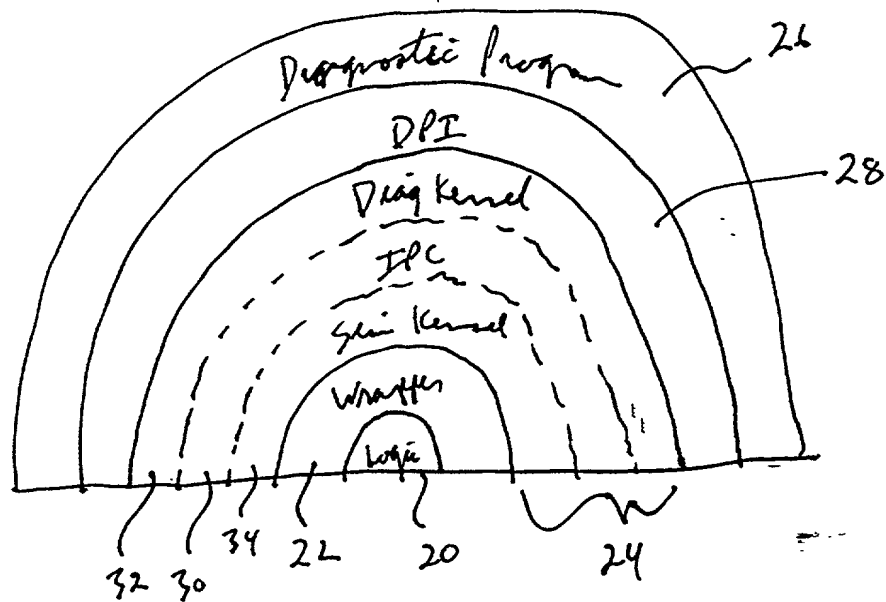 Diagnostic Program
26
DPI
28
Diag Kernel
IPC
Sim Kernel
Wrapper
Logic
32
30
34
22
20
24